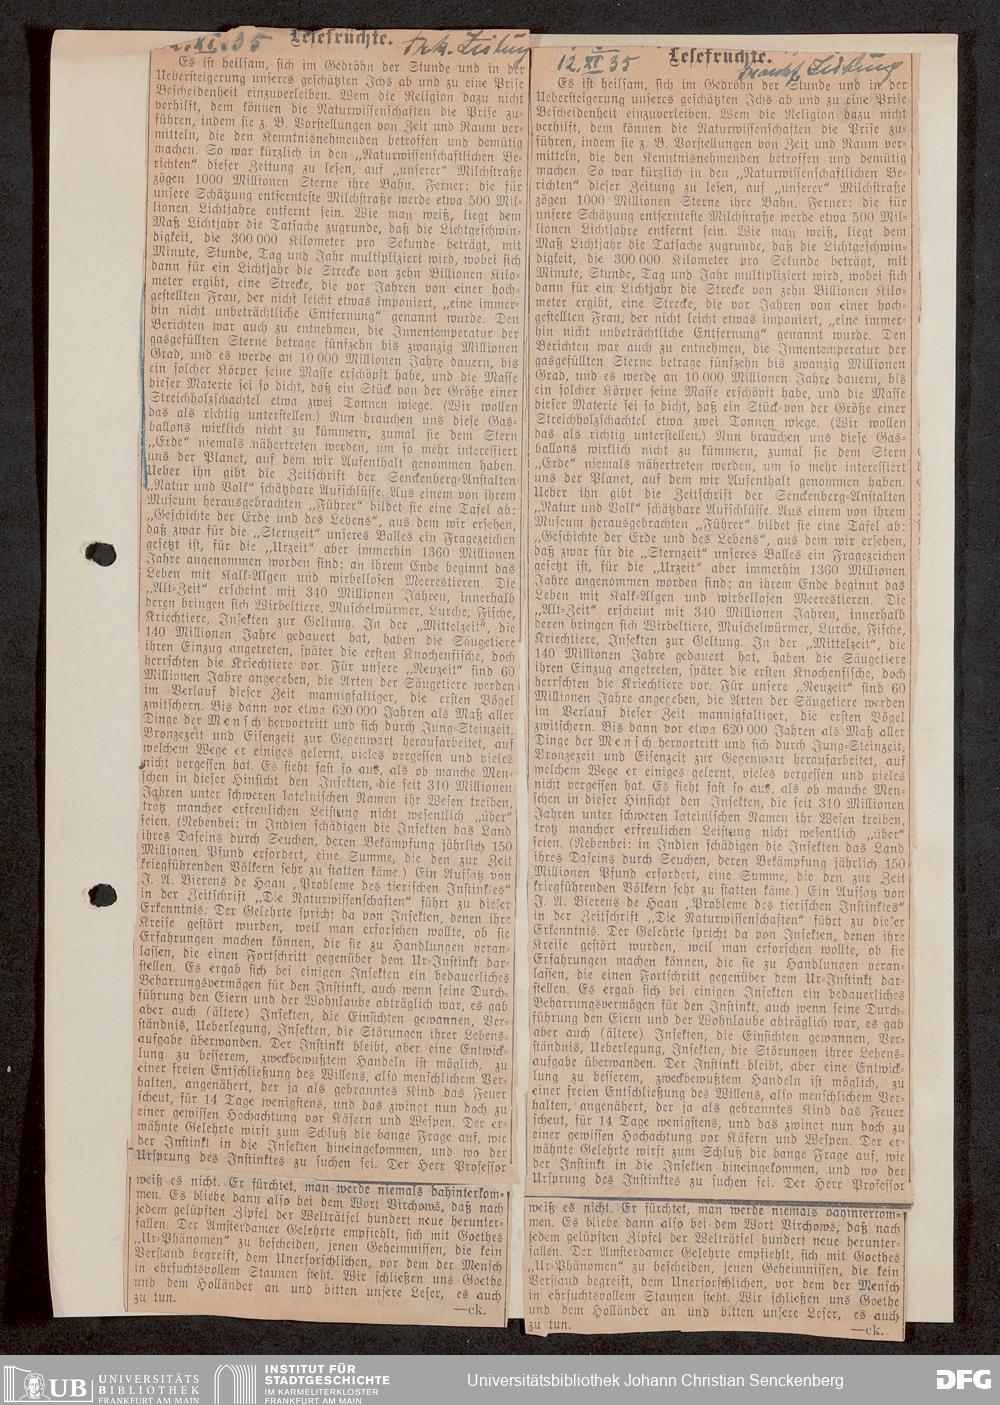 12.XI.35
Lesefrüchte.
Frk. Zeitung
Es ist heilsam, sich im Gedröhn der Stunde und in der
Uebersteigerung unseres geschätzten Ichs ab und zu eine Prise
Bescheidenheit einzuverleiben. Wem die Religion dazu nicht
verhilft, dem können die Naturwissenschaften die Prise zu-
führen, indem sie z. B. Vorstellungen von Zeit und Raum ver-
mitteln, die den Kenntnisnehmenden betroffen und demütig
machen. So war kürzlich in den „Naturwissenschaftlichen Be-
richten“ dieser Zeitung zu lesen, auf „unserer“ Milchstraße
zögen 1000 Millionen Sterne ihre Bahn. Ferner: die für
unsere Schätzung entfernteste Milchstraße werde etwa 500 Mil-
lionen Lichtjahre entfernt sein. Wie man weiß, liegt dem
Maß Lichtjahr die Tatsache zugrunde, daß die Lichtgeschwin-
digkeit, die 300 000 Kilometer pro Sekunde beträgt, mit
Minute, Stunde, Tag und Jahr multipliziert wird, wobei sich
dann für ein Lichtjahr die Strecke von zehn Billionen Kilo-
meter ergibt, eine Strecke, die vor Jahren von einer hoch-
gestellten Frau, der nicht leicht etwas imponiert, „eine immer-
hin nicht unbeträchtliche Entfernung“ genannt wurde. Den
Berichten war auch zu entnehmen, die Innentemperatur der
gasgefüllten Sterne betrage fünfzehn bis zwanzig Millionen
Grad, und es werde an 10 000 Millionen Jahre dauern, bis
ein solcher Körper seine Masse erschöpft habe, und die Masse
dieser Materie sei so dicht, daß ein Stück von der Größe einer
Streichholzschachtel etwa zwei Tonnen wiege. (Wir wollen
das als richtig unterstellen.) Nun brauchen uns diese Gas-
ballons wirklich nicht zu kümmern, zumal sie dem Stern
„Erde“ niemals nähertreten werden, um so mehr interessiert
uns der Planet, auf dem wir Aufenthalt genommen haben.
Ueber ihn gibt die Zeitschrift der Senckenberg-Anstalten
„Natur und Volk“ schätzbare Aufschlüsse. Aus einem von ihrem
Museum herausgebrachten „Führer“ bildet sie eine Tafel ab:
„Geschichte der Erde und des Lebens“, aus dem wir ersehen,
daß zwar für die „Sternzeit“ unseres Balles ein Fragezeichen
gesetzt ist, für die „Urzeit“ aber immerhin 1360 Millionen
Jahre angenommen worden sind; an ihrem Ende beginnt das
Leben mit Kalk-Algen und wirbellosen Meerestieren. Die
„Alt-Zeit“ erscheint mit 340 Millionen Jahren, innerhalb
deren bringen sich Wirbeltiere, Muschelwürmer, Lurche, Fische,
Kriechtiere, Insekten zur Geltung. In der „Mittelzeit“, die
140 Millionen Jahre gedauert hat, haben die Säugetiere
ihren Einzug angetreten, später die ersten Knochenfische, doch
herrschten die Kriechtiere vor. Für unsere „Neuzeit“ sind 60
Millionen Jahre angegeben, die Arten der Säugetiere werden
im Verlauf dieser Zeit mannigfaltiger, die ersten Vögel
zwitschern. Bis dann vor etwa 620 000 Jahren als Maß aller
Dinge der Mensch hervortritt und sich durch Jung-Steinzeit,
Bronzezeit und Eisenzeit zur Gegenwart heraufarbeitet, auf
welchem Wege er einiges gelernt, vieles vergessen und vieles
nicht vergessen hat. Es sieht fast so aus, als ob manche Men-
schen in dieser Hinsicht den Insekten, die seit 310 Millionen
Jahren unter schweren lateinischen Namen ihr Wesen treiben,
trotz mancher erfreulichen Leistung nicht wesentlich „über“
seien. (Nebenbei: in Indien schädigen die Insekten das Land
ihres Daseins durch Seuchen, deren Bekämpfung jährlich 150
Millionen Pfund erfordert, eine Summe, die den zur Zeit
kriegführenden Völkern sehr zu statten käme.) Ein Aufsatz von
J. A. Bierens de Haan „Probleme des tierischen Instinktes“
in der Zeitschrift „Die Naturwissenschaften“ führt zu dieser
Erkenntnis. Der Gelehrte spricht da von Insekten, denen ihre
Kreise gestört wurden, weil man erforschen wollte, ob sie
Erfahrungen machen können, die sie zu Handlungen veran-
lassen, die einen Fortschritt gegenüber dem Ur-Instinkt dar-
stellen. Es ergab sich bei einigen Insekten ein bedauerliches
Beharrungsvermögen für den Instinkt, auch wenn seine Durch-
führung den Eiern und der Wohnlaube abträglich war, es gab
aber auch (ältere) Insekten, die Einsichten gewannen, Ver-
ständnis, Ueberlegung, Insekten, die Störungen ihrer Lebens-
aufgabe überwanden. Der Instinkt bleibt, aber eine Entwick-
lung zu besserem, zweckbewußtem Handeln ist möglich, zu
einer freien Entschließung des Willens, also menschlichem Ver-
halten, angenähert, der ja als gebranntes Kind das Feuer
scheut, für 14 Tage wenigstens, und das zwingt nun doch zu
einer gewissen Hochachtung vor Käfern und Wespen. Der er-
wähnte Gelehrte wirft zum Schluß die bange Frage auf, wie
der Instinkt in die Insekten hineingekommen, und wo der
Ursprung des Instinktes zu suchen sei. Der Herr Professor
weiß es nicht. Er fürchtet, man werde niemals dahinterkom-
men. Es bliebe dann also bei dem Wort Virchows, daß nach
jedem gelüpften Zipfel der Welträtsel hundert neue herunter-
fallen. Der Amsterdamer Gelehrte empfiehlt, sich mit Goethes
„Ur-Phänomen“ zu bescheiden, jenen Geheimnissen, die kein
Verstand begreift, dem Unerforschlichen, vor dem der Mensch
in ehrfurchtsvollem Staunen steht. Wir schließen uns Goethe
und dem Holländer an und bitten unsere Leser, es auch
zu tun.
—ck.
12.XI 35
Lesefrüchte.
Frankf. Zeitung
Es ist heilsam, sich im Gedröhn der Stunde und in der
Uebersteigerung unseres geschätzten Ichs ab und zu eine Prise
Bescheidenheit einzuverleiben. Wem die Religion dazu nicht
verhilft, dem können die Naturwissenschaften die Prise zu-
führen, indem sie z. B. Vorstellungen von Zeit und Raum ver-
mitteln, die den Kenntnisnehmenden betroffen und demütig
machen. So war kürzlich in den „Naturwissenschaftlichen Be-
richten“ dieser Zeitung zu lesen, auf „unserer“ Milchstraße
zögen 1000 Millionen Sterne ihre Bahn. Ferner: die für
unsere Schätzung entfernteste Milchstraße werde etwa 500 Mil-
lionen Lichtjahre entfernt sein. Wie man weiß, liegt dem
Maß Lichtjahr die Tatsache zugrunde, daß die Lichtgeschwin-
digkeit, die 300 000 Kilometer pro Sekunde beträgt, mit
Minute, Stunde, Tag und Jahr multipliziert wird, wobei sich
dann für ein Lichtjahr die Strecke von zehn Billionen Kilo-
meter ergibt, eine Strecke, die vor Jahren von einer hoch-
gestellten Frau, der nicht leicht etwas imponiert, „eine immer-
hin nicht unbeträchtliche Entfernung“ genannt wurde. Den
Berichten war auch zu entnehmen, die Innentemperatur der
gasgefüllten Sterne betrage fünfzehn bis zwanzig Millionen
Grad, und es werde an 10 000 Millionen Jahre dauern, bis
ein solcher Körper seine Masse erschöpft habe, und die Masse
dieser Materie sei so dicht, daß ein Stück von der Größe einer
Streichholzschachtel etwa zwei Tonnen wiege. (Wir wollen
das als richtig unterstellen.) Nun brauchen uns diese Gas-
ballons wirklich nicht zu kümmern, zumal sie dem Stern
„Erde“ niemals nähertreten werden, um so mehr interessiert
uns der Planet, auf dem wir Aufenthalt genommen haben.
Ueber ihn gibt die Zeitschrift der Senckenberg-Anstalten
„Natur und Volk“ schätzbare Aufschlüsse. Aus einem von ihrem
Museum herausgebrachten „Führer“ bildet sie eine Tafel ab:
„Geschichte der Erde und des Lebens“, aus dem wir ersehen,
daß zwar für die „Sternzeit“ unseres Balles ein Fragezeichen
gesetzt ist, für die „Urzeit“ aber immerhin 1360 Millionen
Jahre angenommen worden sind; an ihrem Ende beginnt das
Leben mit Kalk-Algen und wirbellosen Meerestieren. Die
„Alt-Zeit“ erscheint mit 340 Millionen Jahren, innerhalb
deren bringen sich Wirbeltiere, Muschelwürmer, Lurche, Fische,
Kriechtiere, Insekten zur Geltung. In der „Mittelzeit“, die
140 Millionen Jahre gedauert hat, haben die Säugetiere
ihren Einzug angetreten, später die ersten Knochenfische, doch
herrschten die Kriechtiere vor. Für unsere „Neuzeit“ sind 60
Millionen Jahre angegeben, die Arten der Säugetiere werden
im Verlauf dieser Zeit mannigfaltiger, die ersten Vögel
zwitschern. Bis dann vor etwa 620 000 Jahren als Maß aller
Dinge der Mensch hervortritt und sich durch Jung-Steinzeit,
Bronzezeit und Eisenzeit zur Gegenwart heraufarbeitet, auf
welchem Wege er einiges gelernt, vieles vergessen und vieles
nicht vergessen hat. Es sieht fast so aus, als ob manche Men-
schen in dieser Hinsicht den Insekten, die seit 310 Millionen
Jahren unter schweren lateinischen Namen ihr Wesen treiben,
trotz mancher erfreulichen Leistung nicht wesentlich „über“
seien. (Nebenbei: in Indien schädigen die Insekten das Land
ihres Daseins durch Seuchen, deren Bekämpfung jährlich 150
Millionen Pfund erfordert, eine Summe, die den zur Zeit
kriegführenden Völkern sehr zu statten käme.) Ein Aufsatz von
J. A. Bierens de Haan „Probleme des tierischen Instinktes“
in der Zeitschrift „Die Naturwissenschaften“ führt zu dieser
Erkenntnis. Der Gelehrte spricht da von Insekten, denen ihre
Kreise gestört wurden, weil man erforschen wollte, ob sie
Erfahrungen machen können, die sie zu Handlungen veran-
lassen, die einen Fortschritt gegenüber dem Ur-Instinkt dar-
stellen. Es ergab sich bei einigen Insekten ein bedauerliches
Beharrungsvermögen für den Instinkt, auch wenn seine Durch-
führung den Eiern und der Wohnlaube abträglich war, es gab
aber auch (ältere) Insekten, die Einsichten gewannen, Ver-
ständnis, Ueberlegung, Insekten, die Störungen ihrer Lebens-
aufgabe überwanden. Der Instinkt bleibt, aber eine Entwick-
lung zu besserem, zweckbewußtem Handeln ist möglich, zu
einer freien Entschließung des Willens, also menschlichem Ver-
halten, angenähert, der ja als gebranntes Kind das Feuer
scheut, für 14 Tage wenigstens, und das zwingt nun doch zu
einer gewissen Hochachtung vor Käfern und Wespen. Der er-
wähnte Gelehrte wirft zum Schluß die bange Frage auf, wie
der Instinkt in die Insekten hineingekommen, und wo der
Ursprung des Instinktes zu suchen sei. Der Herr Professor
weiß es nicht. Er fürchtet, man werde niemals dahinterkom-
men. Es bliebe dann also bei dem Wort Virchows, daß nach
jedem gelüpften Zipfel der Welträtsel hundert neue herunter-
fallen. Der Amsterdamer Gelehrte empfiehlt, sich mit Goethes
„Ur-Phänomen“ zu bescheiden, jenen Geheimnissen, die kein
Verstand begreift, dem Unerforschlichen, vor dem der Mensch
in ehrfurchtsvollem Staunen steht. Wir schließen uns Goethe
und dem Holländer an und bitten unsere Leser, es auch
zu tun.
—ck.
UB UNIVERSITÄTS
BIBLIOTHEK
FRANKFURT AM MAIN
INSTITUT FÜR
STADTGESCHICHTE
IM KARMELITERKLOSTER
FRANKFURT AM MAIN
Universitätsbibliothek Johann Christian Senckenberg
DFG